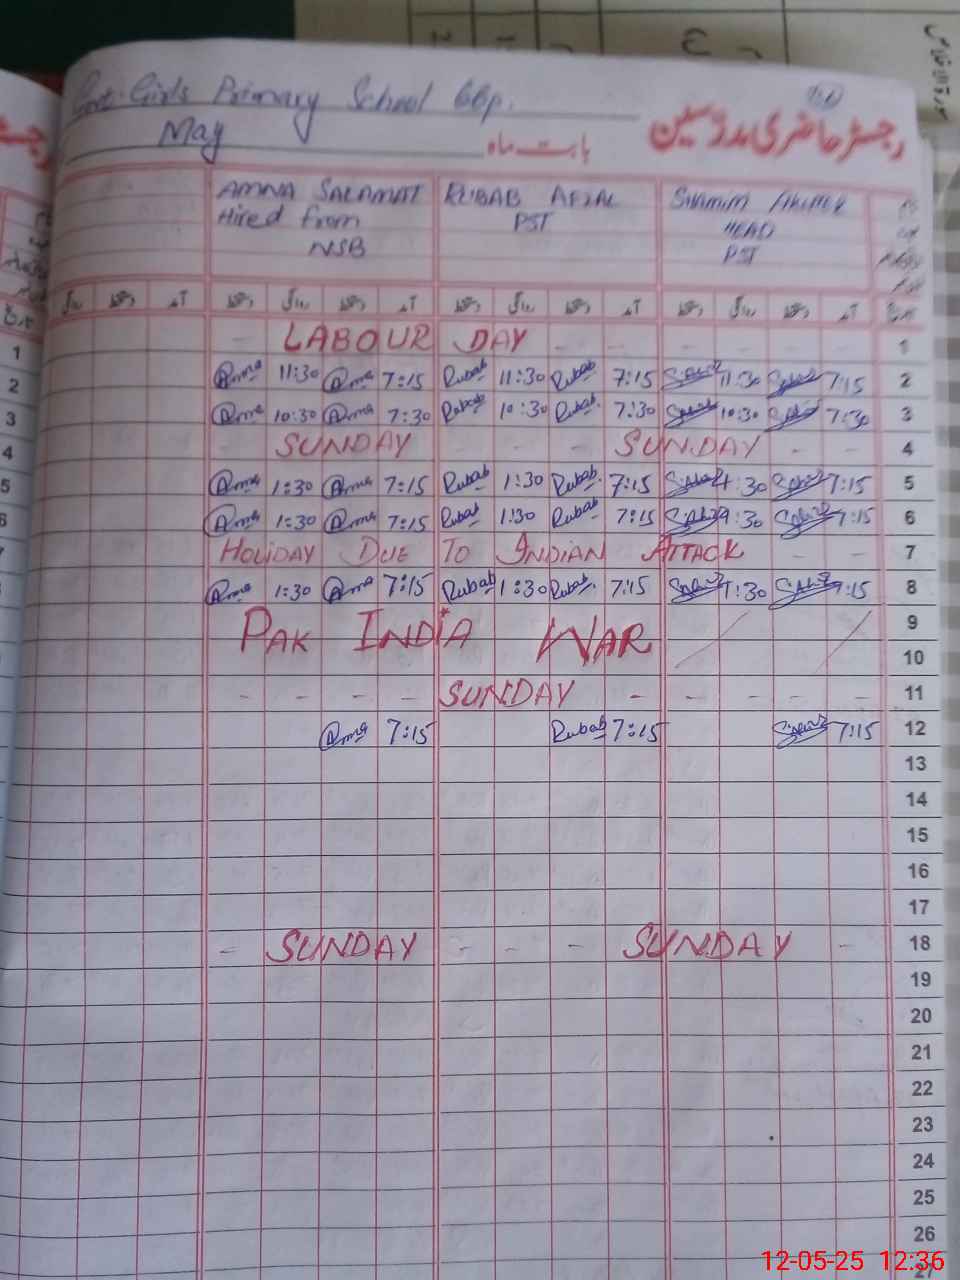 Govt. Girls Primary School
May
بابت ماہ
رجسٹر حاضری مدرسین
AMNA SALAMAT RUBAB AFZAL SHAMIM AKHTER
Hired from PST HEAD
NSB PST
روانگی دستخط آمد دستخط روانگی دستخط آمد دستخط روانگی دستخط آمد
- LABOUR DAY - - - - - - 1
Amna 11:30 Amna 7:15 Rubab 11:30 Rubab 7:15 11:30 7:15 2
Amna 10:30 Amna 7:30 Rubab 10:30 Rubab. 7:30 10:30 7:30 3
SUNDAY - - SUNDAY - - 4
Amna 1:30 Amna 7:15 Rubab 1:30 Rubab. 7:15 1:30 7:15 5
Amna 1:30 Amna 7:15 Rubab 1:30 Rubab 7:15 1:30 7:15 6
HOLIDAY DUE TO INDIAN ATTACK - - 7
Amna 1:30 Amna 7:15 Rubab 1:30 Rubab. 7:15 1:30 7:15 8
9
PAK INDIA WAR
10
- - - - SUNDAY - - - - - 11
Amna 7:15 Rubab 7:15 7:15 12
13
14
15
16
17
- SUNDAY - - - SUNDAY - 18
19
20
21
22
23
24
25
26
27
1
2
3
4
5
6
7
12-05-25 12:36